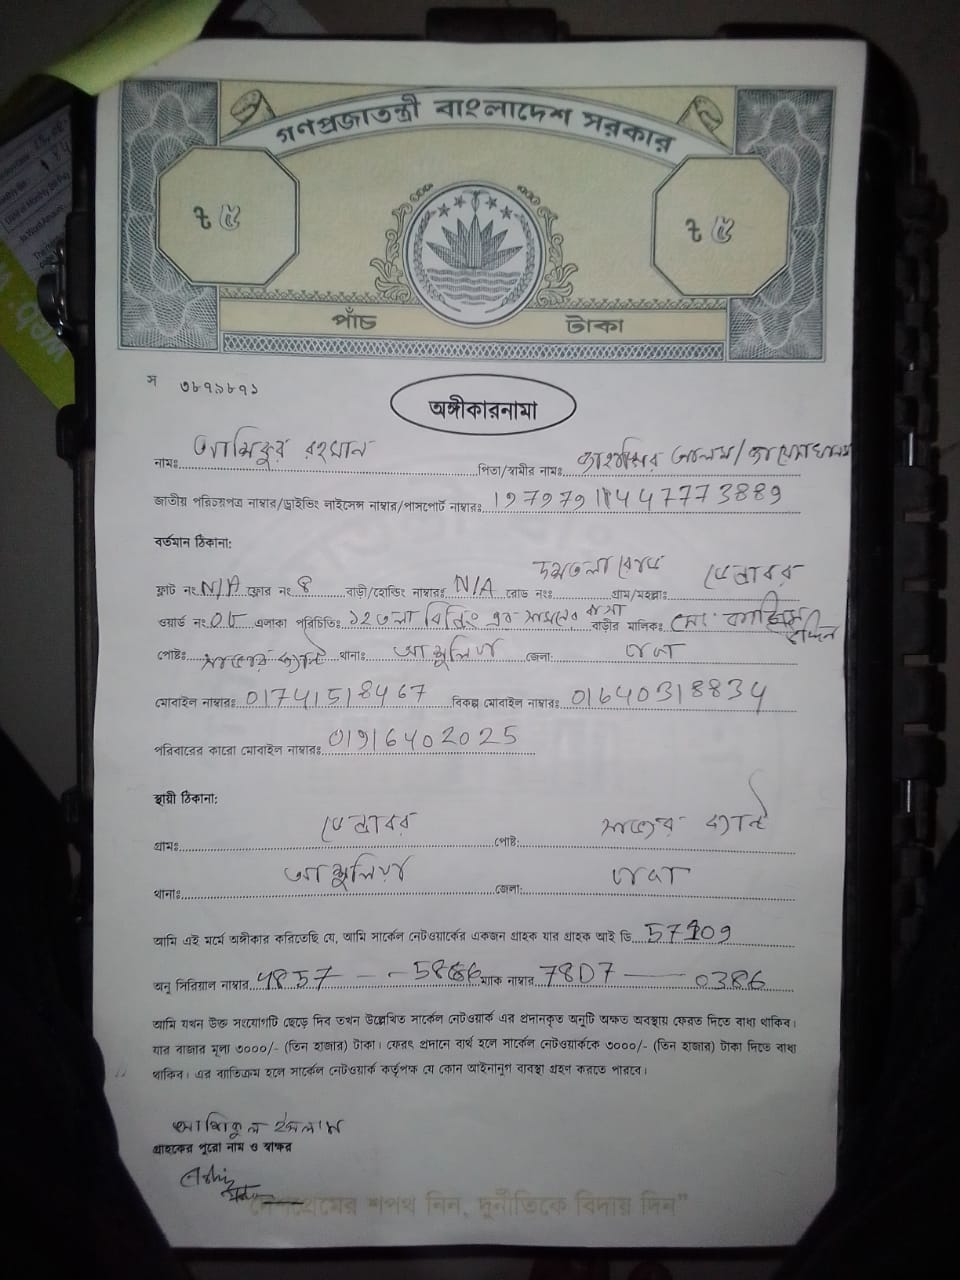 গণপ্রজাতন্ত্রী বাংলাদেশ সরকার
৳ ৫ ৳ ৫
পাঁচ টাকা
স ৩৮৭৯৮৭১
অঙ্গীকারনামা
নামঃ রহমান পিতা/স্বামীর নামঃ আলম/
জাতীয় পরিচয়পত্র নাম্বার/ড্রাইভিং লাইসেন্স নাম্বার/পাসপোর্ট নাম্বারঃ
বর্তমান ঠিকানা:
ফ্লাট নং N/A ফ্লোর নং ৪ বাড়ী/হোল্ডিং নাম্বারঃ N/A রোড নংঃ গ্রাম/মহল্লাঃ
ওয়ার্ড নং ০৫ এলাকা পরিচিতিঃ ১২তলা এর সামনের বাসা বাড়ীর মালিকঃ মোঃ
পোষ্টঃ থানাঃ আশুলিয়া জেলা: ঢাকা
মোবাইল নাম্বারঃ 01741518467 বিকল্প মোবাইল নাম্বারঃ 01640318834
পরিবারের কারো মোবাইল নাম্বারঃ 01916402025
স্থায়ী ঠিকানা:
গ্রামঃ পোষ্ট:
থানাঃ আশুলিয়া জেলা: ঢাকা
আমি এই মর্মে অঙ্গীকার করিতেছি যে, আমি সার্কেল নেটওয়ার্কের একজন গ্রাহক যার গ্রাহক আই ডি
অনু সিরিয়াল নাম্বার 4857 -- মাক নাম্বার 7807 — 0386
আমি যখন উক্ত সংযোগটি ছেড়ে দিব তখন উল্লেখিত সার্কেল নেটওয়ার্ক এর প্রদানকৃত অনুটি অক্ষত অবস্থায় ফেরত দিতে বাধ্য থাকিব।
যার বাজার মূল্য ৩০০০/- (তিন হাজার) টাকা। ফেরৎ প্রদানে ব্যর্থ হলে সার্কেল নেটওয়ার্ককে ৩০০০/- (তিন হাজার) টাকা দিতে বাধ্য
থাকিব। এর ব্যতিক্রম হলে সার্কেল নেটওয়ার্ক কর্তৃপক্ষ যে কোন আইনানুগ ব্যবস্থা গ্রহণ করতে পারবে।
আশিকুল ইসলাম
গ্রাহকের পুরো নাম ও স্বাক্ষর
দেশপ্রেমের শপথ নিন, দুর্নীতিকে বিদায় দিন"